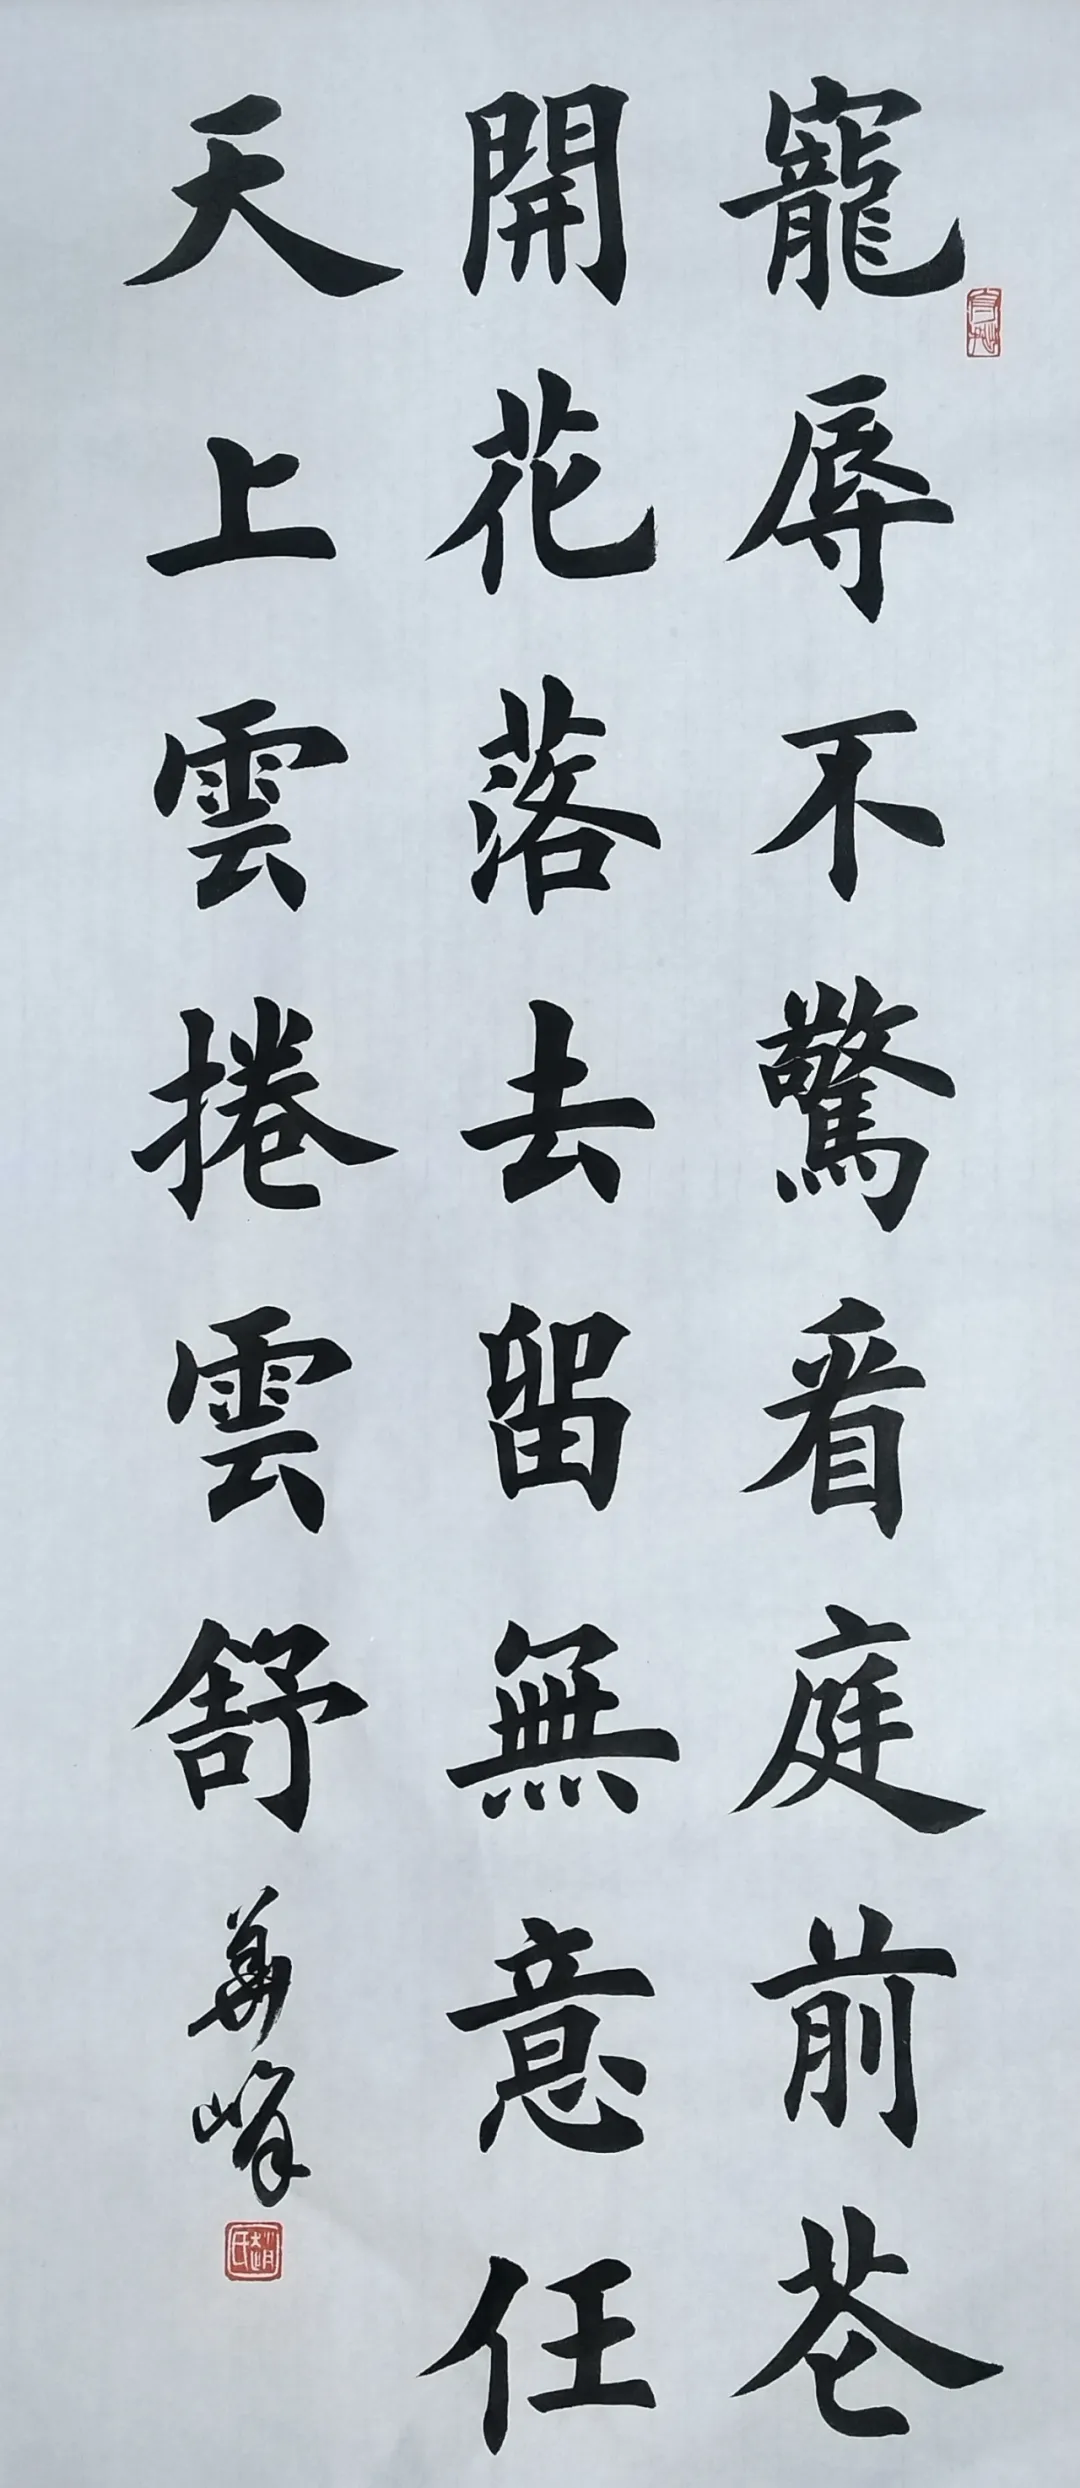 寵辱不驚看庭前芲
開花落去留無意任
天上雲捲雲舒
華峰
趙氏